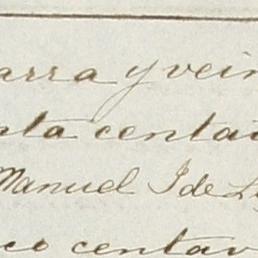 arra y vein
nta centa
Manuel I de L
co centav